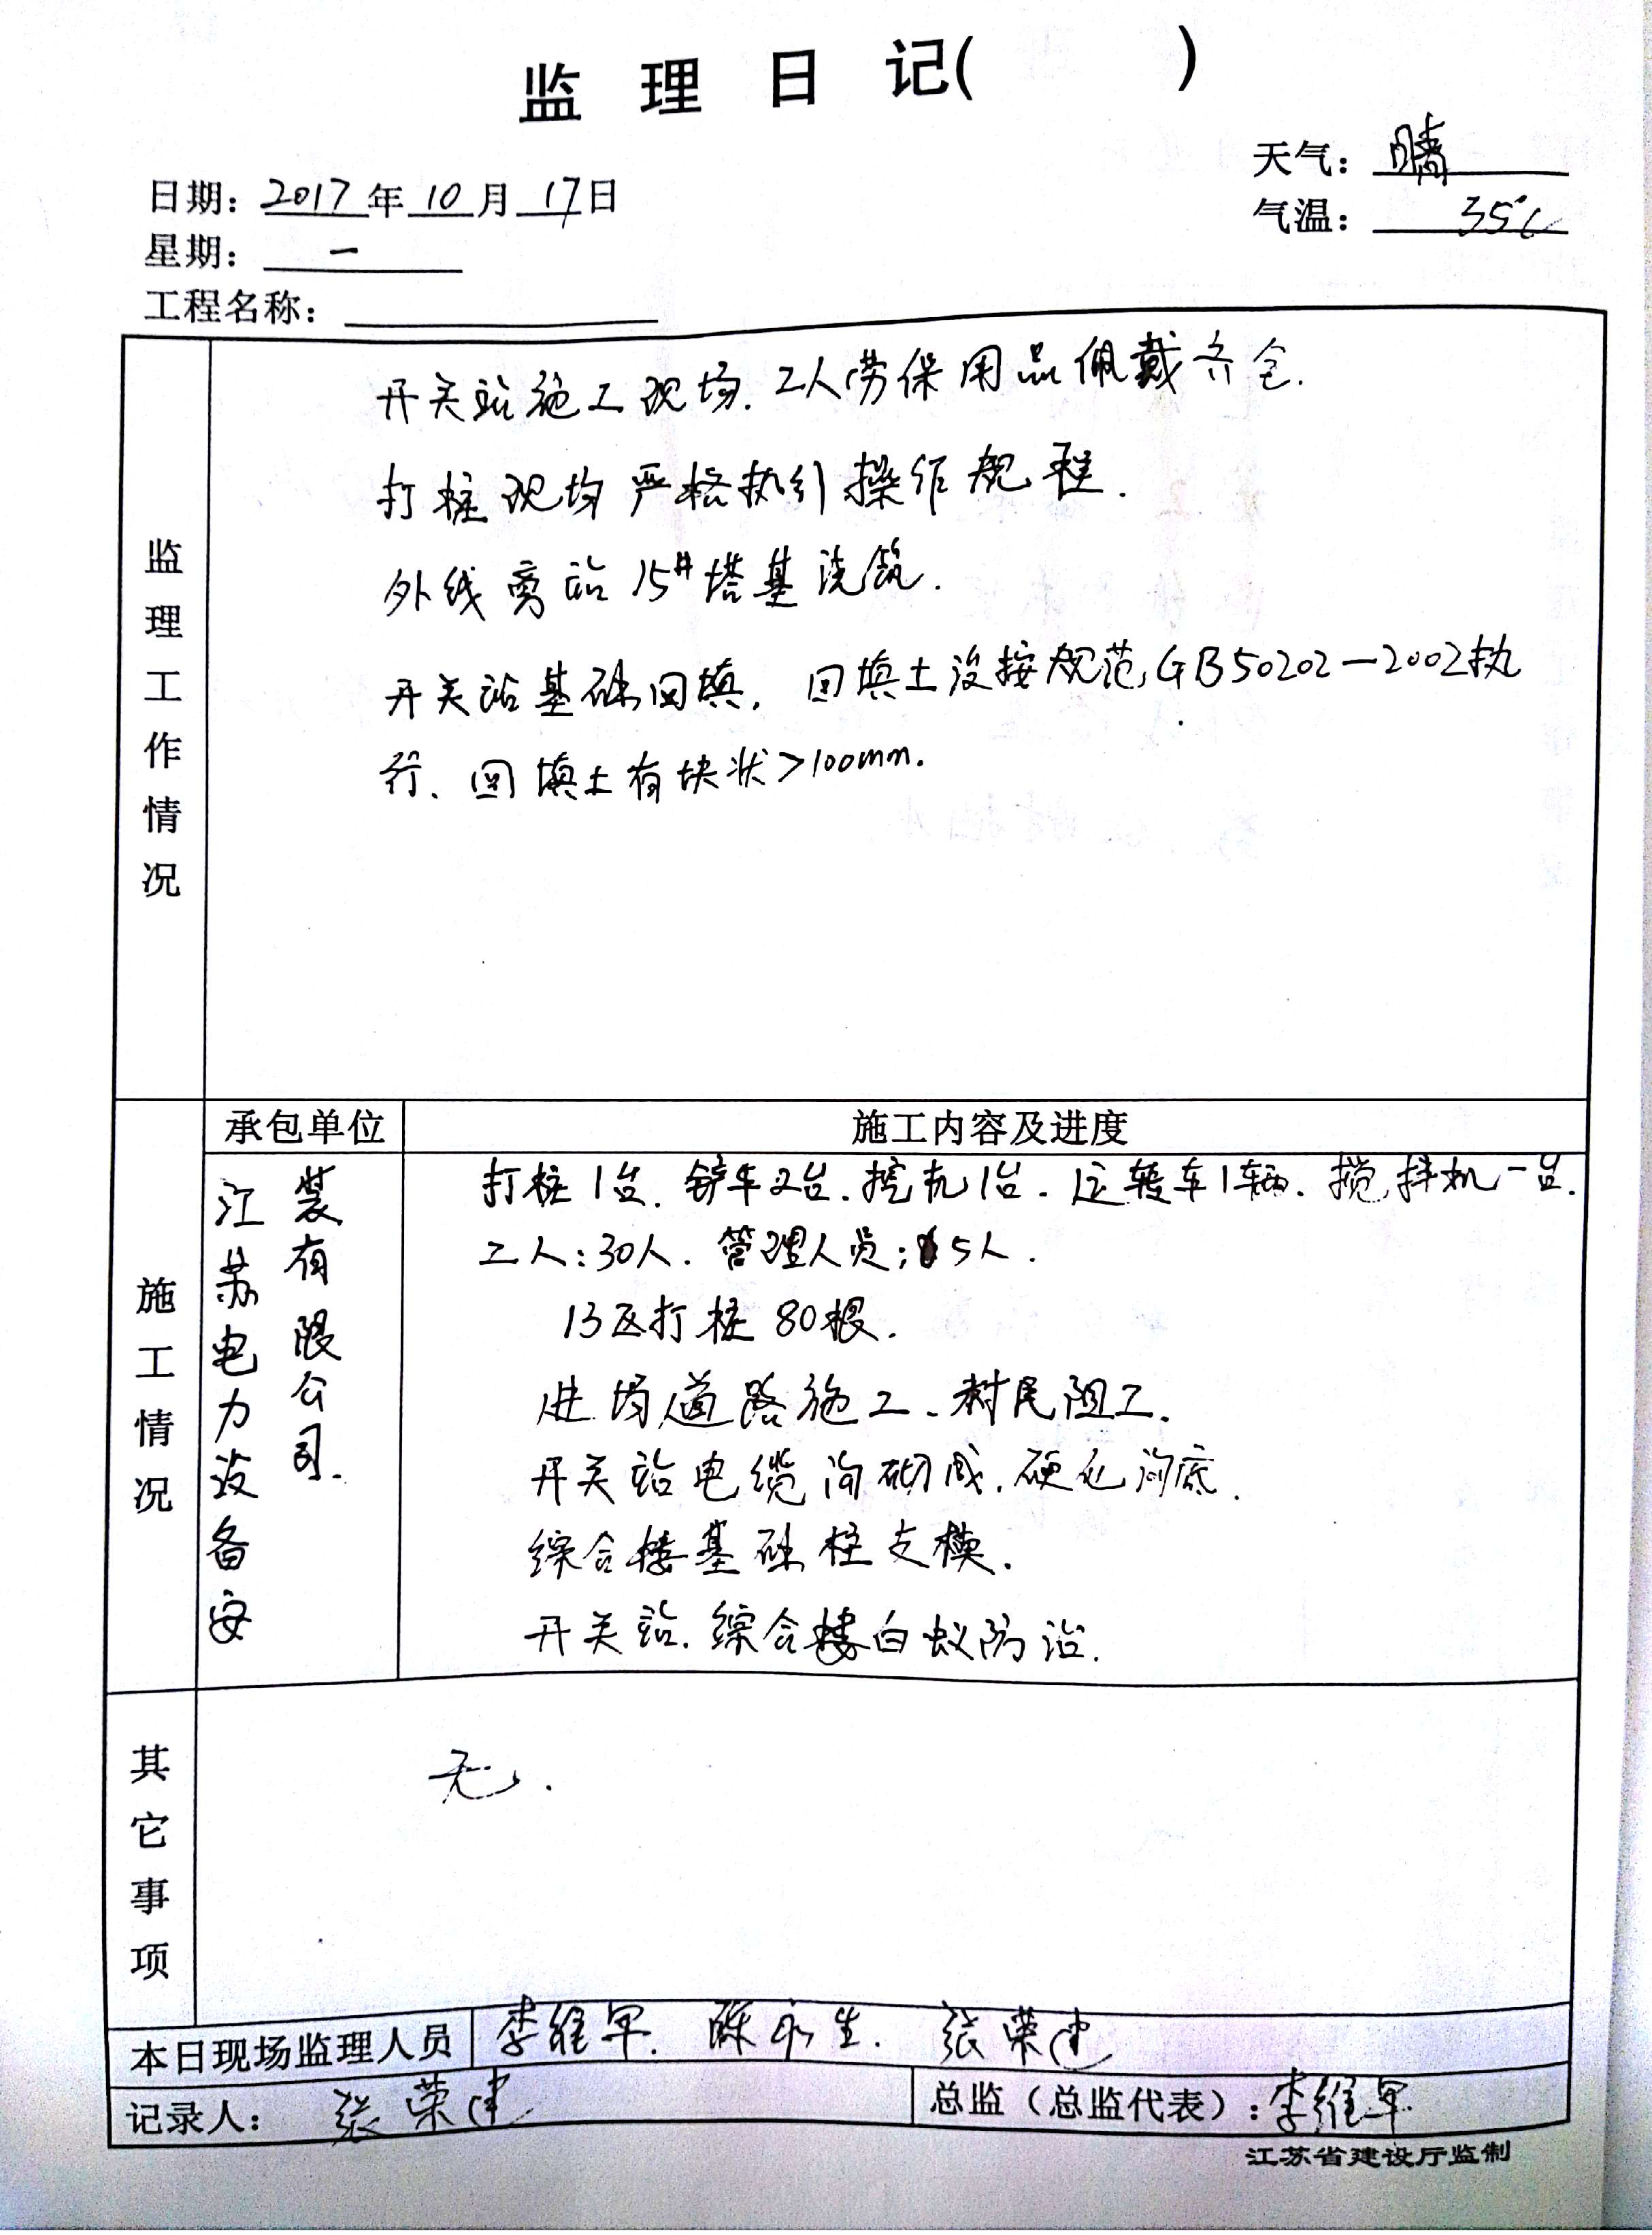 监理日记( )
天气：晴
日期：2017年10月17日
气温：35℃
星期：一
工程名称：
监理工作情况
开关站施工现场.工人劳保用品佩戴齐全.
打桩现场严格执行操作规程.
外线旁站15#塔基浇筑.
开关站基础回填，回填土没按规范GB50202—2002执
行、回填土有块状>100mm.
施工情况
承包单位
施工内容及进度
江苏电力设备安
装有限公司.
打桩1台.铲车2台.挖机1台.运转车1辆.搅拌机一台.
工人:30人.管理人员;5人.
13区打桩80根.
进场道路施工、村民阻工.
开关站电缆沟砌成.硬化沟底.
综合楼基础柱支模.
开关站.综合楼白蚁防治.
其它事项
无.
本日现场监理人员 李维军.陈永生.张荣建
记录人：张荣建
总监（总监代表）:李维军
江苏省建设厅监制